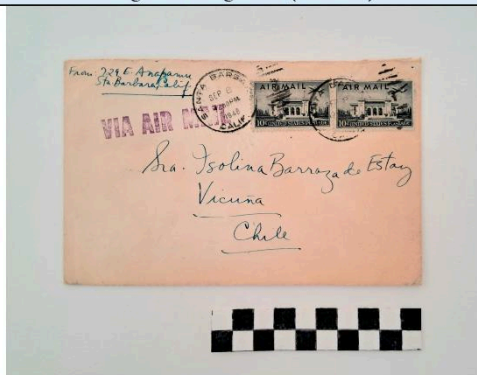 From 729 E. Anapamu
Sta Barbara, Calif
VIA AIR MAIL
SANTA BARBARA
SEP
PM
1948
CALIF.
AIR MAIL
10¢ UNITED STATES
AIR MAIL
10¢ UNITED STATES
Sra. Isolina Barraza de Estay
Vicuña
Chile